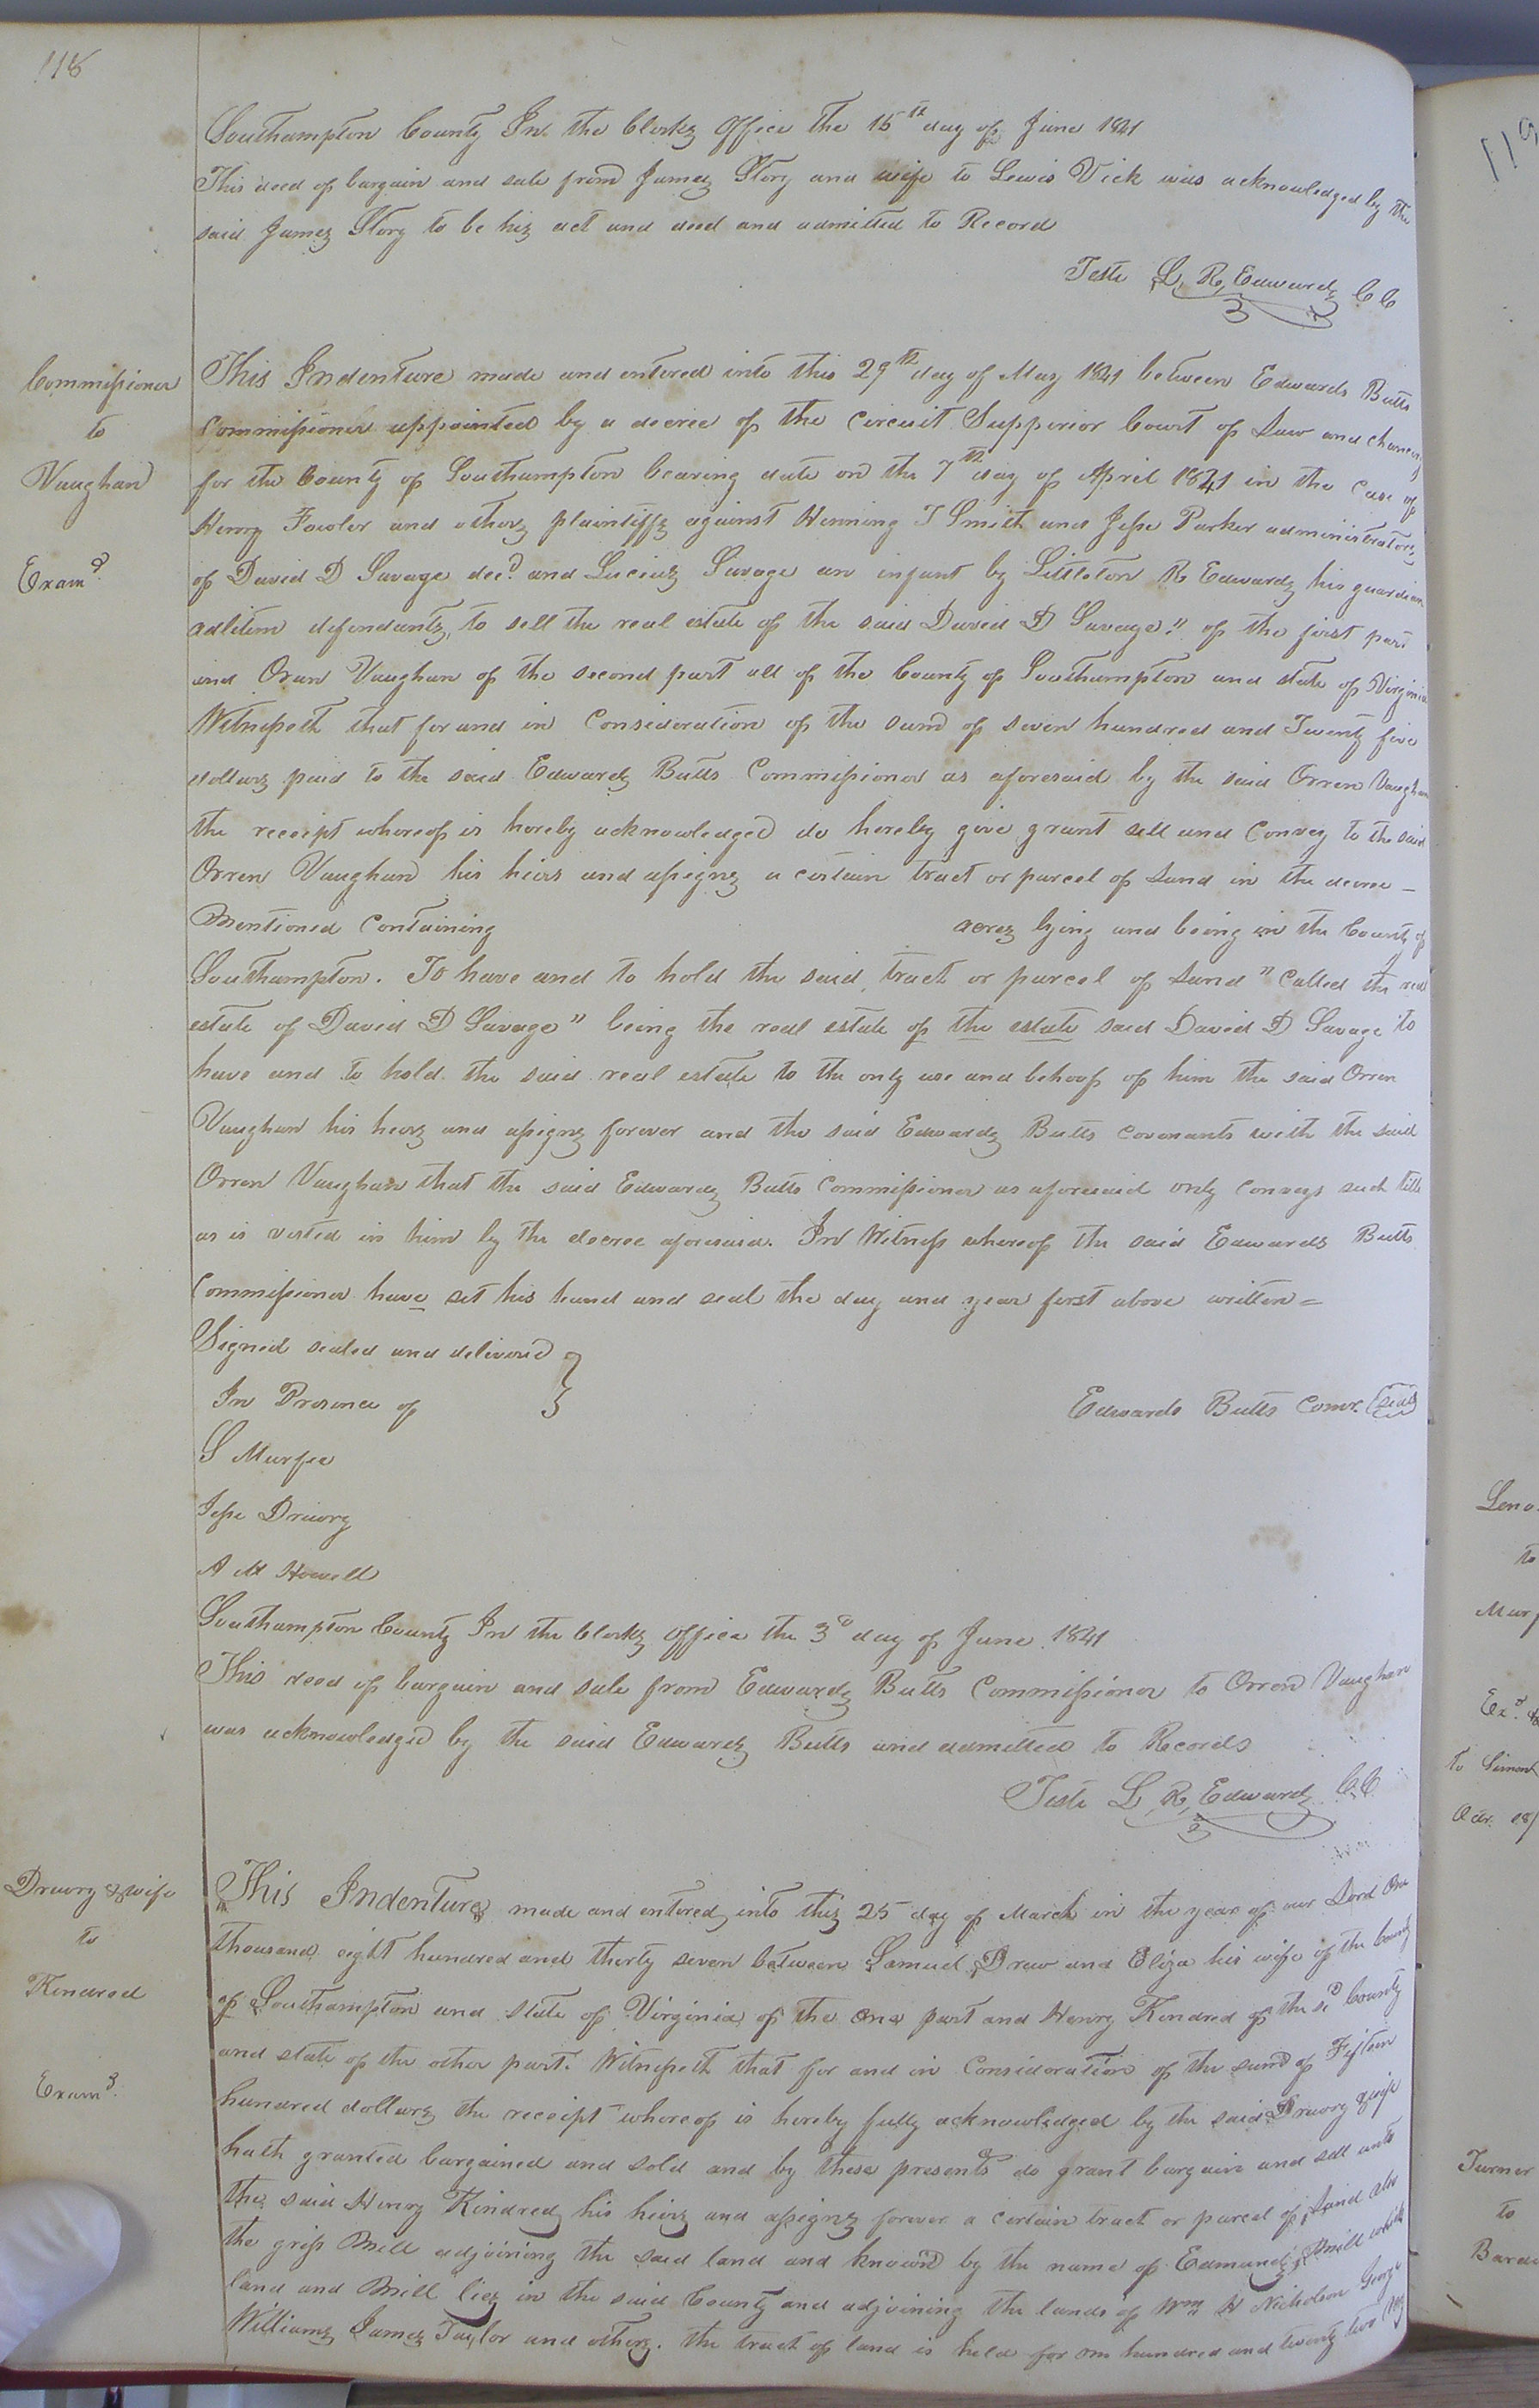 118
Southampton County In the Clerks Office the 15th day of June 1841
This deed of bargain and sale from James Story and wife to Lewis Vick was acknowledged by the
said James Story to be his act and deed and admitted to Record
Teste L. R. Edwards CC
Commissioner
to
Vaughan
Examd.
This Indenture made and entered into this 29th day of May 1841 between Edwards Butts
Commissioner appointed by a decree of the Circuit Supperior Court of Law and Chancery
for the County of Southampton bearing date on the 7th day of April 1841 in the Case of
Henry Fowler and others plaintiffs against Henning T Smith and Jesse Parker administrators
of David D Savage decd. and Lucius Savage an infant by Littleton R Edwards his guardian
adlitem defendants, to sell the real estate of the said David D Savage" of the first part
and Oran Vaughan of the second part all of the County of Southampton and state of Virginia
Witnesseth that for and in Consideration of the sum of seven hundred and Twenty five
dollars paid to the said Edwards Butts Commissioner as aforesaid by the said Orren Vaughan
the receipt whereof is hereby acknowledged do hereby give grant sell and Convey to the said
Orren Vaughan his heirs and assigns a certain tract or parcel of Land in the decree
Mentioned Containing acres lying and being in the County of
Southampton. To have and to hold the said tract or parcel of Land "Called the real
estate of David D Savage" being the real estate of the estate said David D Savage to
have and to hold the said real estate to the only use and behoof of him the said Orren
Vaughan his heirs and assigns forever and the said Edwards Butts Covenants with the said
Orren Vaughan that the said Edwards Butts Commissioner as aforesaid only Conveys such title
as is vested in him by the decree aforesaid. In Witness whereof the said Edwards Butts
Commissioner have set his hand and seal the day and year first above written =
Signed sealed and delivered
In Presence of
Edwards Butts Comr. (seal)
S Murfee
Jesse Drewry
A M Howell
Southampton County In the Clerks Office the 3d day of June 1841
This deed of bargain and sale from Edwards Butts Commissioner to Orren Vaughan
was acknowledged by the said Edwards Butts and admitted to Records
Teste L. R. Edwards C.C.
Drewry & wife
to
Kindred
Examd.
This Indenture made and entered into this 25 day of March in the year of our Lord One
thousand eight hundred and thirty seven between Samuel Drew and Eliza his wife of the County
of Southampton and state of Virginia of the One part and Henry Kindred of the sd County
and state of the other part. Witnesseth that for and in Consideration of the sum of Fifteen
hundred dollars the receipt whereof is hereby fully acknowledged by the said Drewry & wife
hath granted bargained and sold and by these presents do grant bargain and sell unto
the said Henry Kindred his heirs and assigns forever a certain tract or parcel of Land also
the griss Mill adjoining the said land and known by the name of Edmunds Mill which
land and Mill lies in the said County and adjoining the lands of Wm H Nicholson George
Williams James Taylor and others. the tract of land is held for one hundred and twenty two
119
to
Turner
to